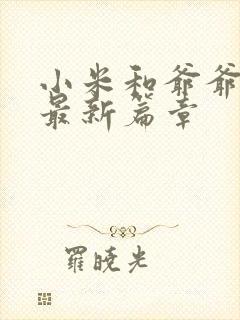 小米和爷爷
最新篇章
羅曉光